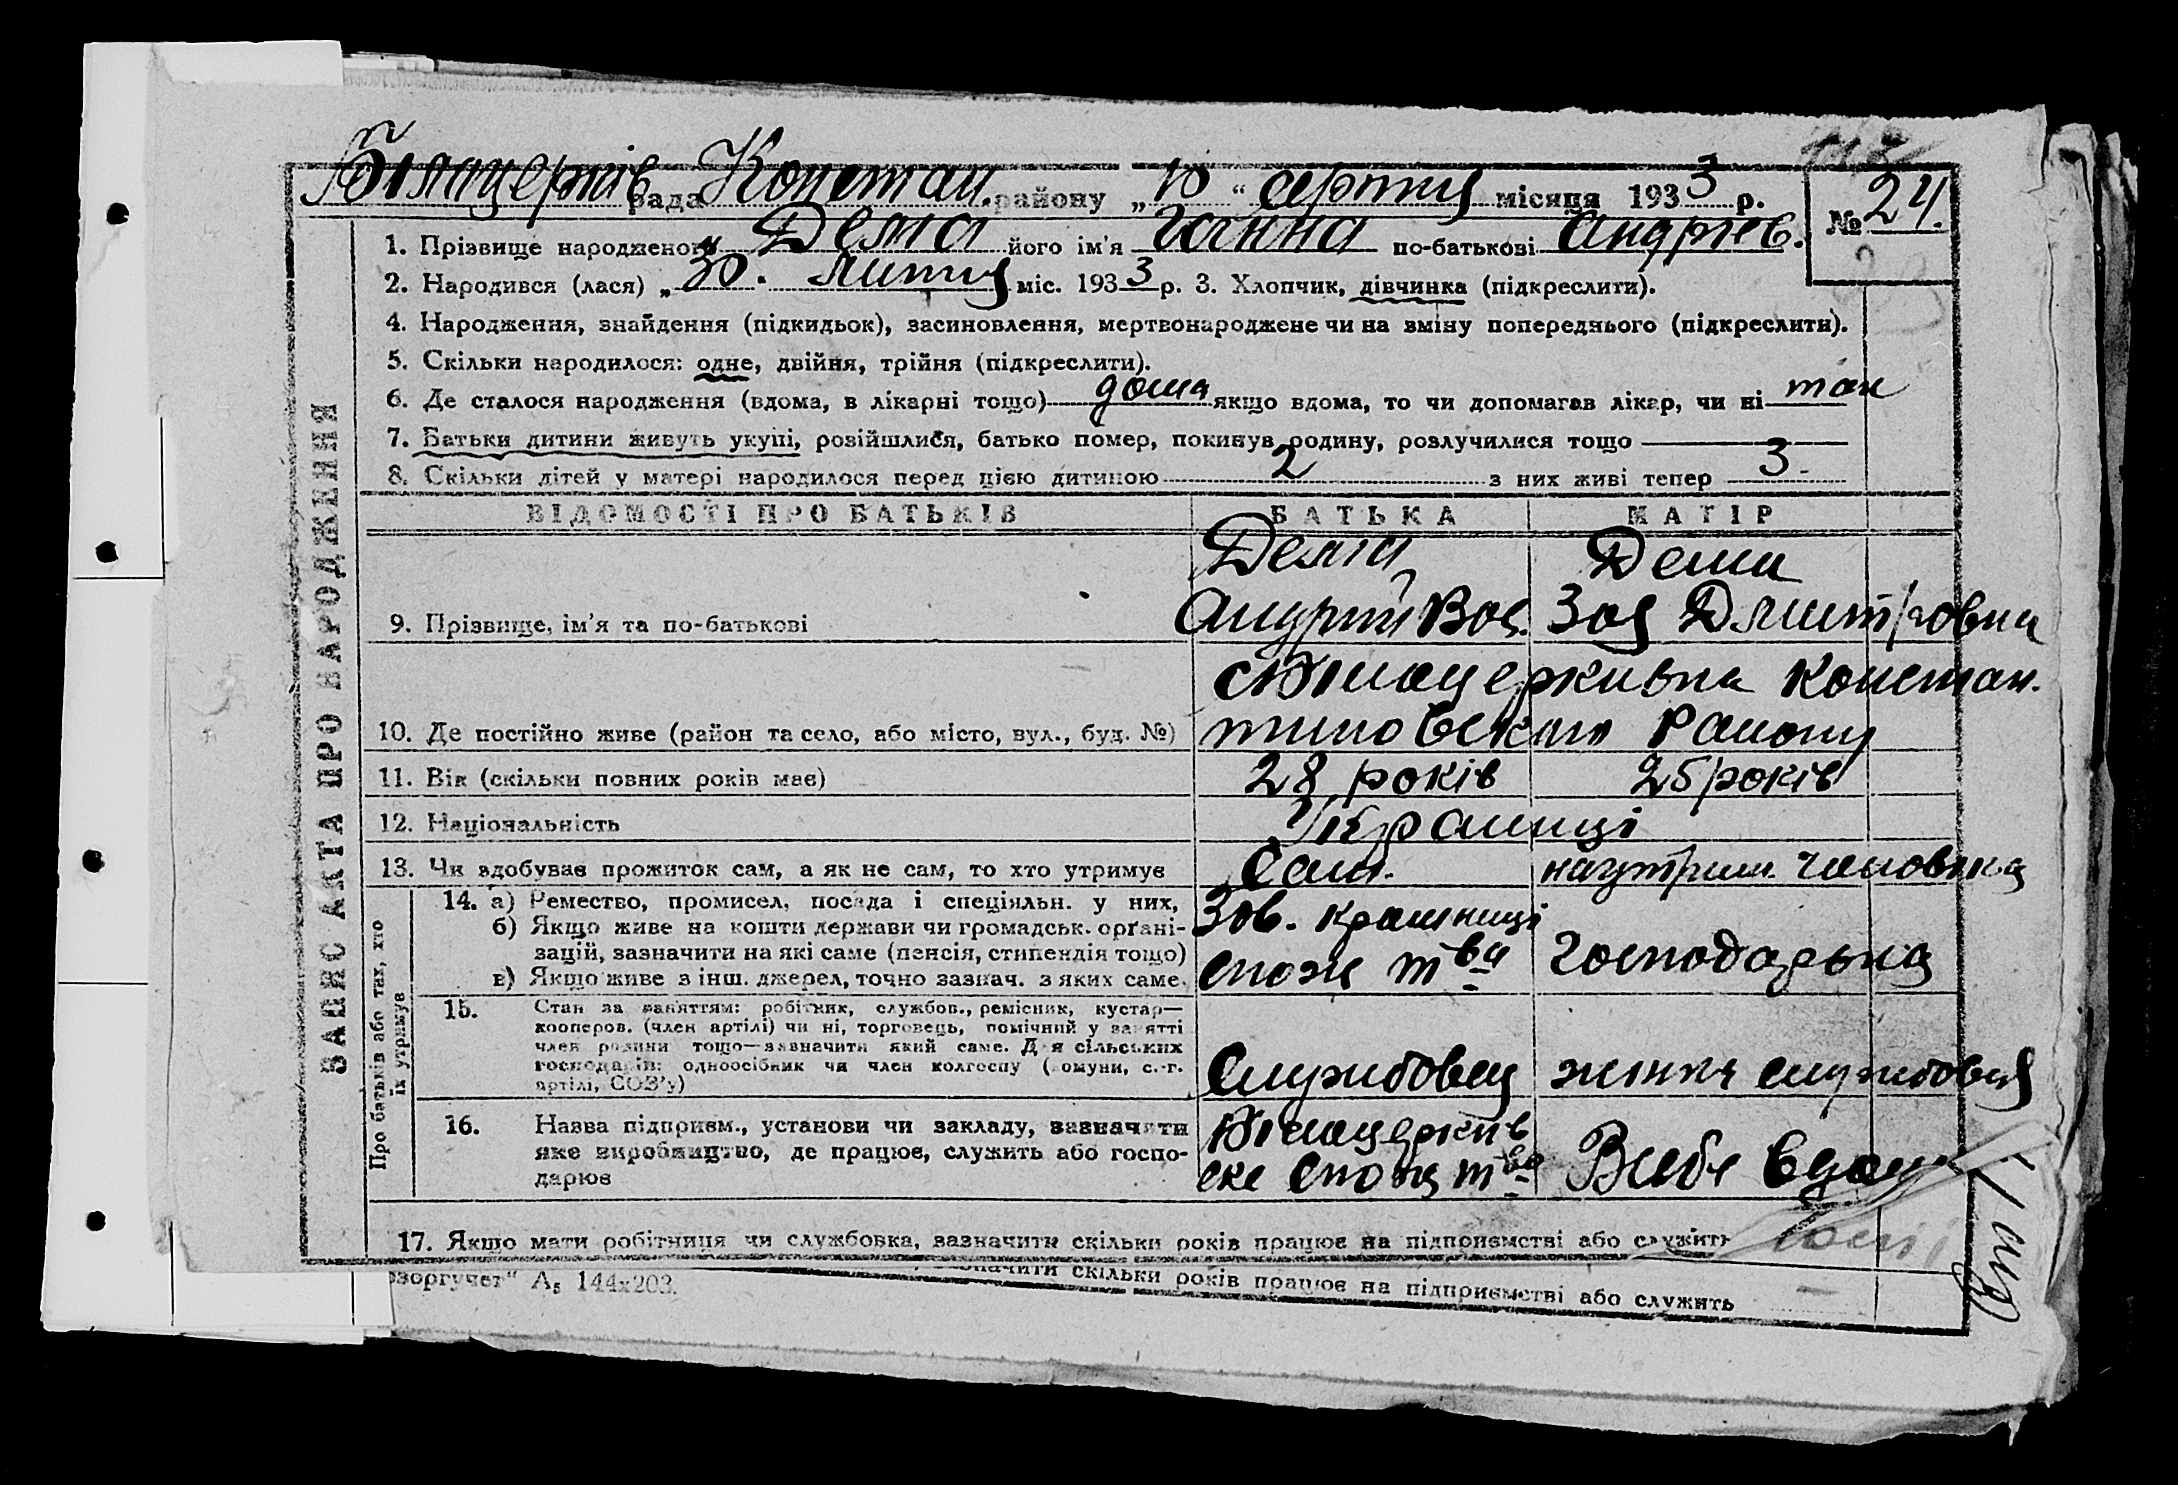 Білацерків рада Констан. району „10“ серпня місяця 1933 р.
№ 24.
1. Прізвище народженого Дема його ім'я Ганна по-батькові Андріев.
2. Народився (лася) „30. липня міс. 1933 р. 3. Хлопчик, дівчинка (підкреслити).
4. Народження, знайдення (підкидьок), засиновлення, мертвонароджене чи на зміну попереднього (підкреслити).
5. Скільки народилося: одне, двійня, трійня (підкреслити).
6. Де сталося народження (вдома, в лікарні тощо) дома якщо вдома, то чи допомагав лікар, чи ні так
7. Батьки дитини живуть укупі, розійшлися, батько помер, покинув родину, розлучилися тощо
8. Скільки дітей у матері народилося перед цією дитиною 2 з них живі тепер 3.
ЗАПИС АКТА ПРО НАРОДЖЕННЯ
ВІДОМОСТІ ПРО БАТЬКІВ БАТЬКА МАТІР
Дема Дема
9. Прізвище, ім'я та по-батькові Андрій Вас. Зоя Дмитровна
Білацерківка Констан.
10. Де постійно живе (район та село, або місто, вул., буд. №) тиновського району
11. Вік (скільки повних років має) 28 років 25 років
12. Національність Українці
13. Чи здобуває прожиток сам, а як не сам, то хто утримує Сам. на утрим. человіка
Про батьків або тих, хто їх утримує
14. а) Ремество, промисел, посада і спеціяльн. у них, Зав. крамниці
б) Якщо живе на кошти держави чи громадськ. органі-
зацій, зазначити на які саме (пенсія, стипендія тощо) спож тва господарька
в) Якщо живе з інш. джерел, точно зазнач. з яких саме.
15. Стан за заняттям: робітник, службов., ремісник, кустар—
кооперов. (член артілі) чи ні, торговець, помічний у занятті
член родини тощо—зазначити який саме. Для сільських
господарів: одноосібник чи член колгоспу (комуни, с.-г.
артілі, СОЗ'у) Службовец жінка службовця
16. Назва підприєм., установи чи закладу, зазначити Білацерків
яке виробництво, де працює, служить або госпо- ске Спож тва Вибе вдом
дарює
17. Якщо мати робітниця чи службовка, зазначити скільки років працює на підприємстві або служить
значити скільки років працює на підприємстві або служить
озоргучет" А₅ 144х203.